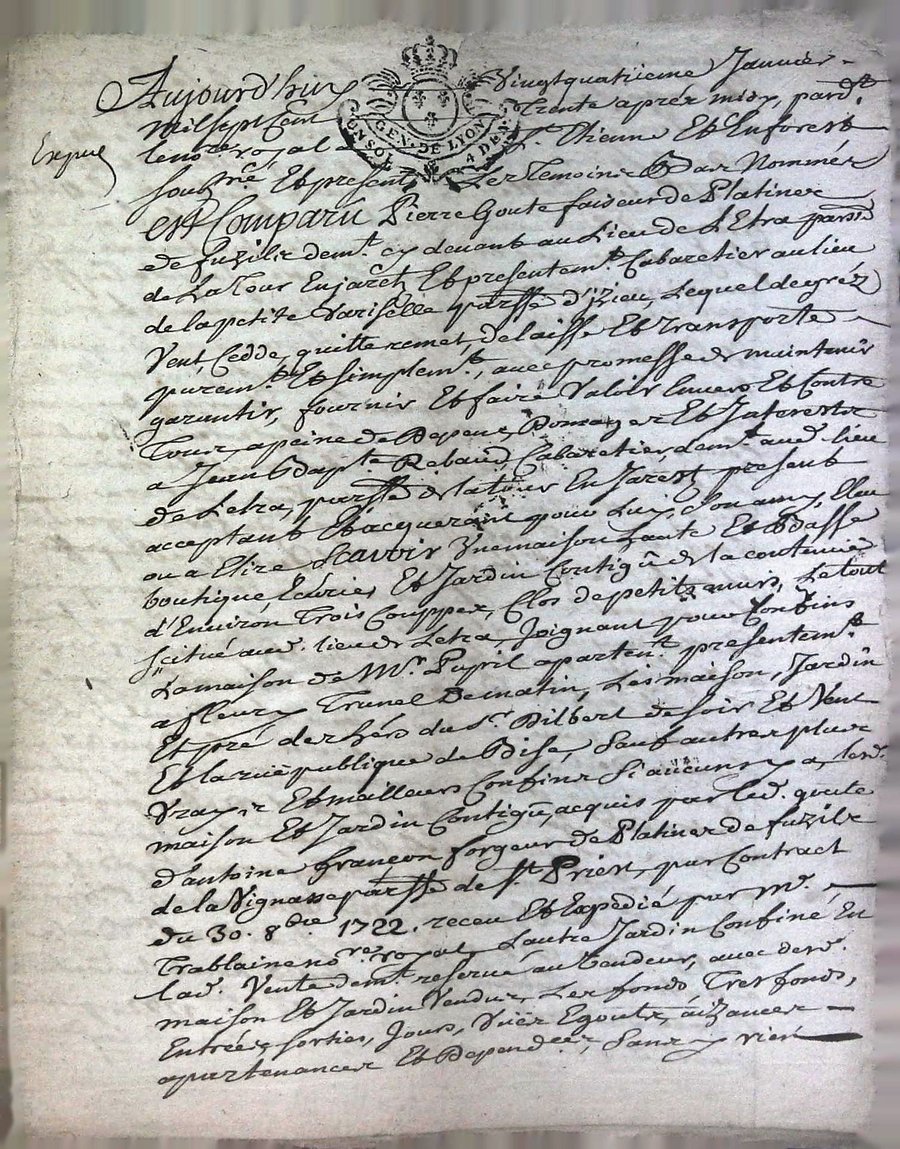 Aujourd'huy Vingtquatrieme Janvier
mil sept Cent Trente aprés midy, pard.t
GEN. DE LYON
UN SOL 4 DEN.
le no.re royal a S.t Etienne Et Enforest
Expué
souz.né Et present Les Temoins Bas Nommés
est Comparû Pierre Goute faiseur de Platines
de fuzils dem.t cy devant au Lieu de L'Etra parsse
de La Tour Enjarêt Et presentem.t Cabaretier au lieu
de la petite Variselle parsse d'izieu, Lequel de gréz
Vent, Cedde, quitte remet, delaisse Et transporte
purem.t Et simplem.t, avec promesse de maintenir
garantir, fournir Et faire Valoir Envers Et Contre
Tous, apeine de Depens, Domages Et Interests
a Jean Bapte Rebaud, Cabaretier, dem.t aud. lieu
de Letra, parsse de la tour En Jarest present
acceptant Et acquerant pour Luy, Son amy Eleu
ou a Elire Scavoir Vne maison haute Et Basse
boutique, Ecuries Et Jardin Contigû de la contenüe
d'Environ Trois Coupper, Clos de petits murs, Le tout
scitué aud. lieu de Letra, Joignant pour Confins
La maison de M.r Pupil apartent presentem.t
a fleury Trunel De matin, Les maison, Jardin
Et pré des hérs du S.r Dilbert de soir Et Vent
Et la rüe publique de Bise, Sauf autres plus
Vrays Et meilleurs Confins Si aucuns y a, lesd.
maison Et Jardin Contigû, acquis par led. goute
d'antoine françon forgeur de Platines de fuzils
de la Vignasse parsse de S.t Priest, par Contract
du 30. 8bre 1722. receu Et Expedié par M.e
Trablaine no.re royal, Lautre Jardin Confiné En
lad. Vente dem.t reservé au Vendeur, avec lesd.
maison Et Jardin Vendus, Les fonds Tresfonds,
Entrées, sorties, Jours, Vües Egouts, aizances
apartenances Et Dependces, Sans y rien